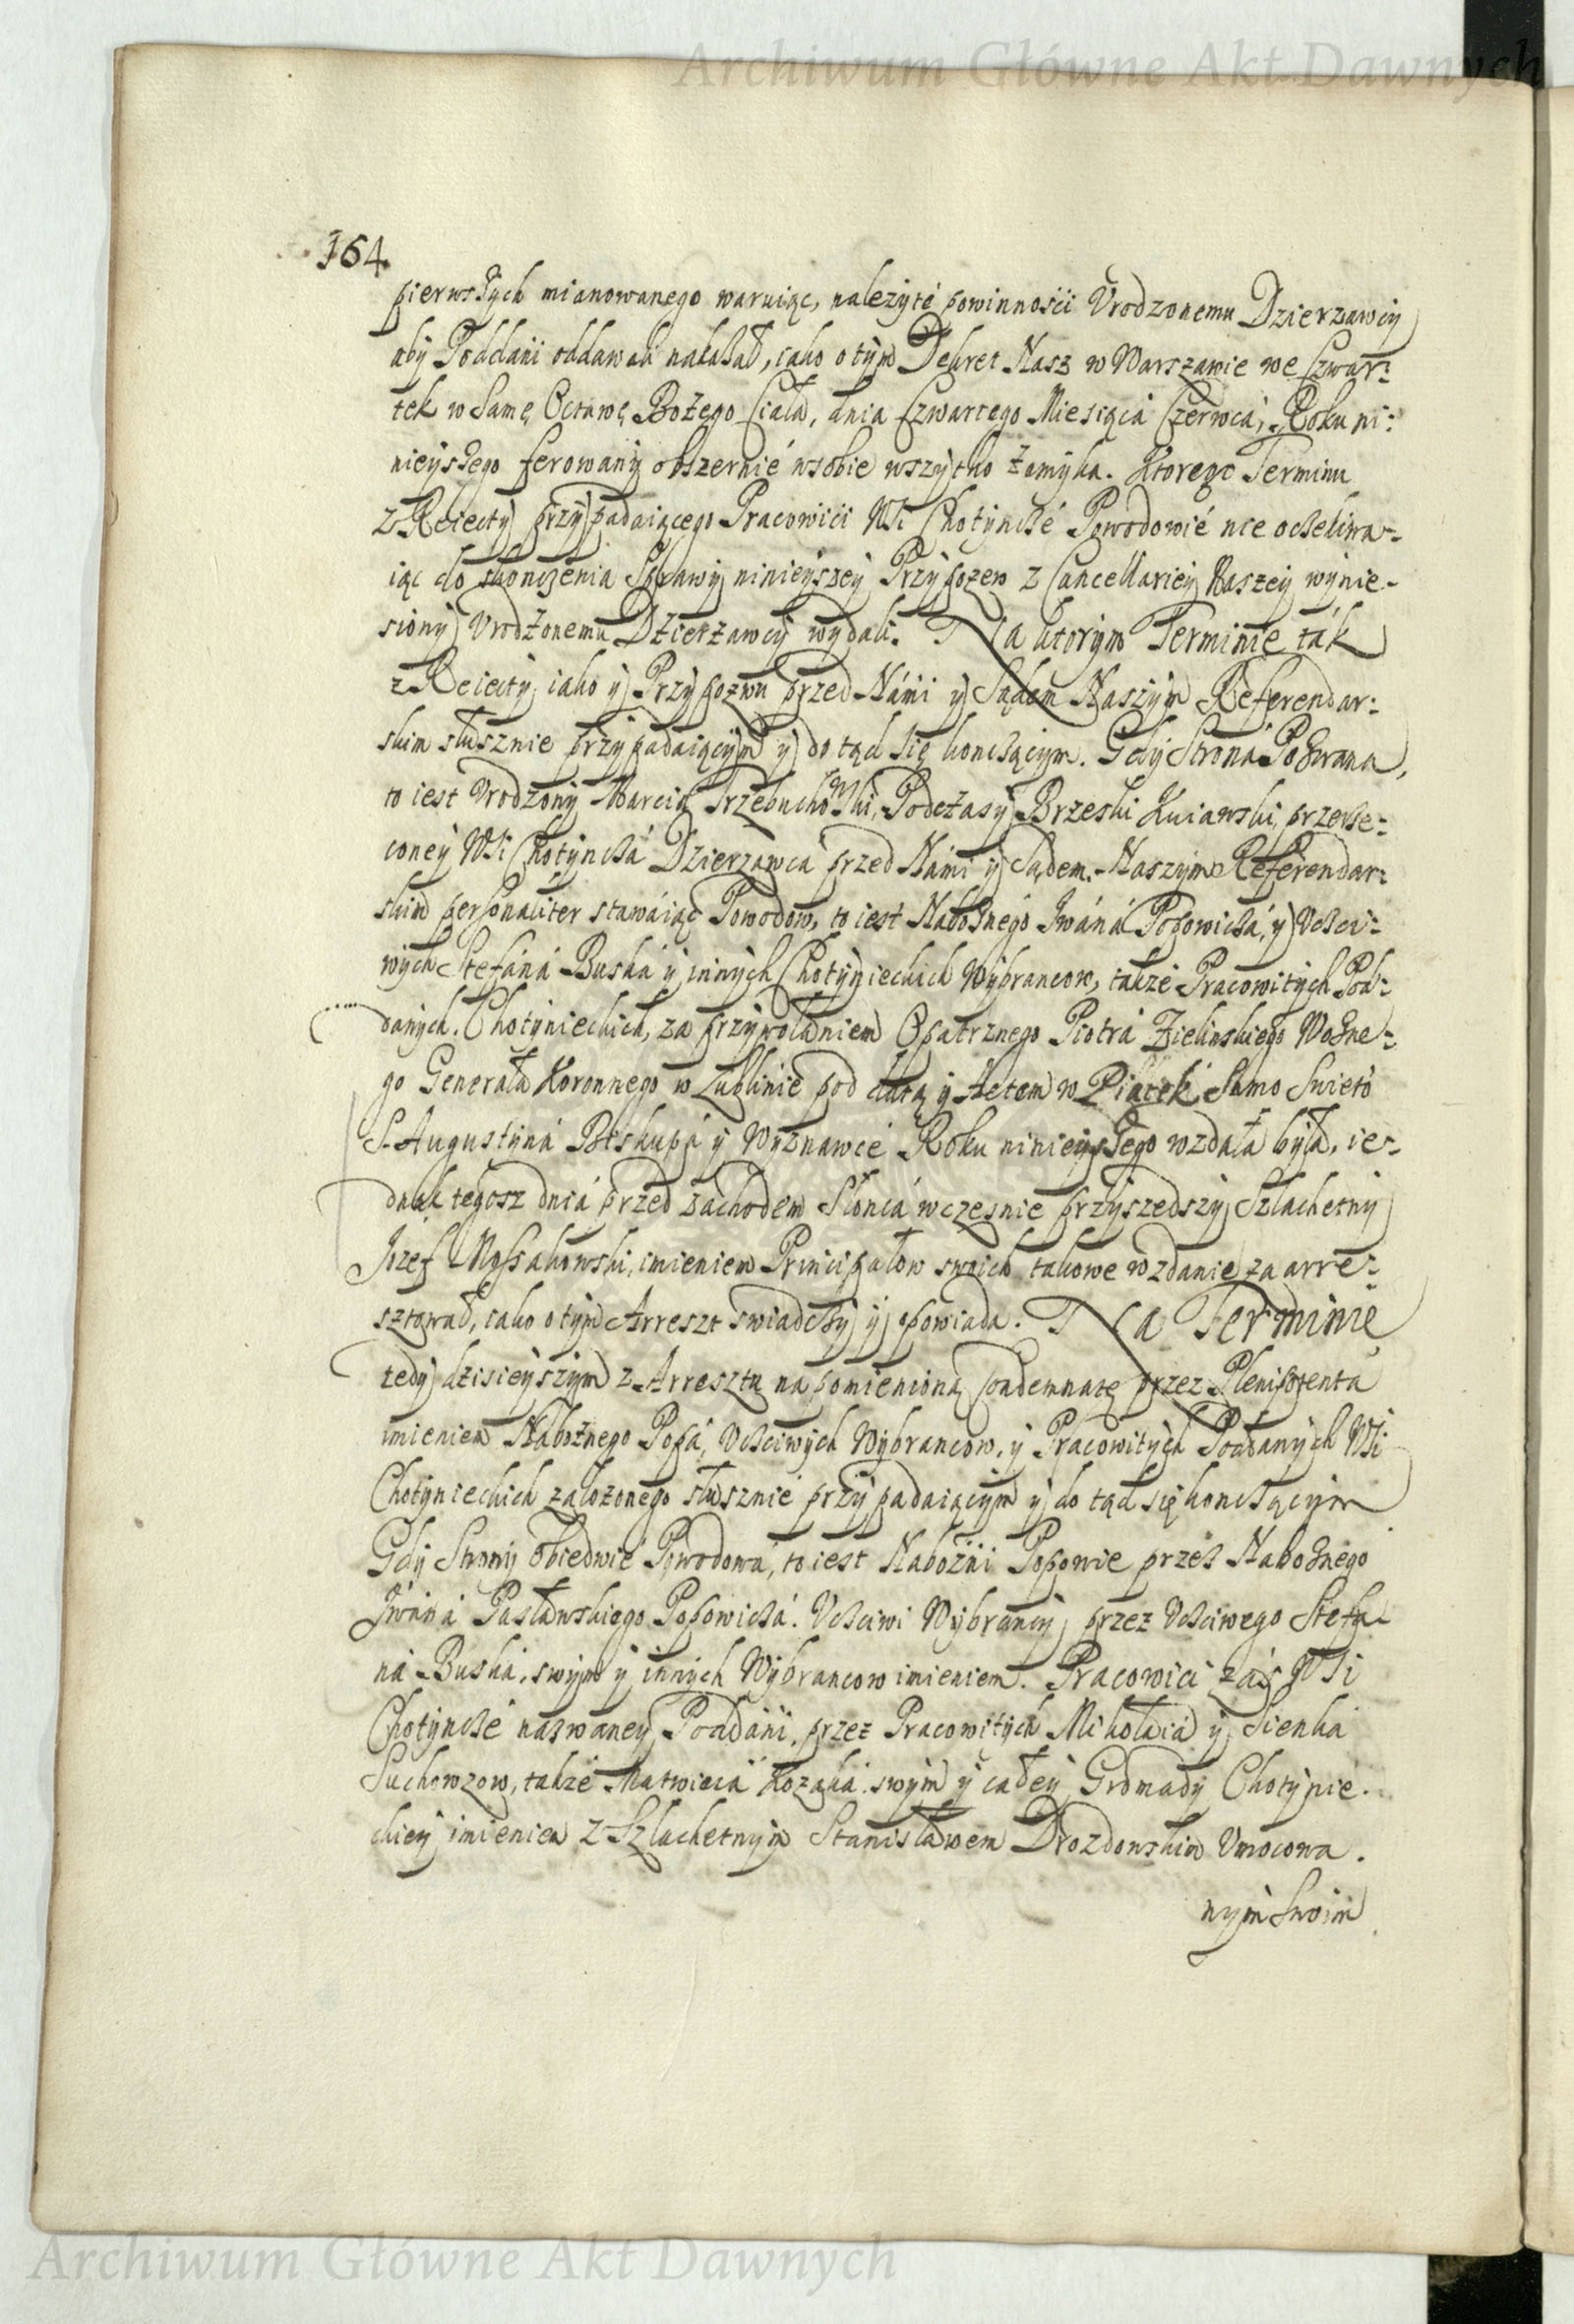 Archiwum Główne Akt Dawnych
164
pierwszych mianowanego waruiąc, należyté powinnoścī Vrodzonemu Dzierzawcÿ
abÿ Poddanī oddawali nakazał, iako o tÿm Dekret Nasz w Warszawie we Czwar:
tek w Samę Octawę Bożego Ciała, dnia Czwartego Miesiącá Czerwcá, Roku ni:
nieÿszego ferowanÿ obszernié w sobie wszÿtko zamÿka. Ktorego Terminu
z Reiectÿ przÿpadaiącego Pracowicī Wsi Chotÿncze Powodowié nie oczekiwa-
iąc do skończenia Sprawÿ ninieÿszeÿ Przÿpozew z Cancellarieÿ Naszeÿ wÿnie-
sionÿ Vrodzonemu Dzierzawcÿ wÿdali. Na ktorÿm Terminie ták
z Reiectÿ, iako ÿ Przÿpozwu przed Námi ÿ Sądem Naszÿm Referendar:
skim słusznie przÿpadaiącÿm ÿ do tąd się konczącÿm. Gdÿ Strona Pozwana,
to iest Vrodzonÿ Marcin Trzebuchowski, Podczaszÿ Brzeski Kuiawski, przerze:
coneÿ Wsi Chotÿnczá Dzierzawca przed Námi ÿ Sądem Naszÿm Referendar:
skim personaliter stawáiąc Powodow, to iest Nabożnégo Iwáná Popowiczá, ÿ Vcżci:
wÿch Stefáná Buská ÿ innÿch Chotÿnieckich Wÿbrancow, także Pracowitÿch Pod:
danÿch Chotÿnieckich, za przÿwołaniem Opatrznego Piotrá Zielinskiego Wozne:
go Generała Koronnego w Lublinie pod datą ÿ Actem w Piątek Samo Swięto
S. Augustÿná Biskupá ÿ Wyznawcé Roku ninieÿszego wzdała bÿła, ie-
dnak tegosz dniá przed zachodem Słoncá wczesnie przÿszedszÿ Szlachetnÿ
Jozef Mossakowski, imieniem Principałow swoich takowe wzdanie zaarre:
sztował, iako o tÿm Arreszt swiadczÿ ÿ opowiada. Na Terminie
tedÿ dzisieÿszÿm z Arresztu na pomienioną Condemnatę przez Plenipotenta
imieniem Nabożnego Popá, Vcżciwÿch Wÿbrancow, ÿ Pracowitÿch Poddanÿch Wsi
Chotÿnieckich założonego słusznié przÿpadaiącÿm ÿ do tąd się konczącÿm
Gdÿ Stronÿ obiedwié Powodowá, to iest Nabożni Popowie przez Nabożnego
Iwáná Pasławskiego Popowiczá. Vcżciwi Wÿbrancÿ, przez Vcżciwego Stefa-
ná Buská, swÿm ÿ innÿch Wÿbrancow imieniem. Pracowici zaś Wsi
Chotÿnczé nazwaneÿ Poddáni, przez Pracowitÿch Mikołaiá ÿ Sienka
Suchowzow, także Matwieiá Kozaká swÿm ÿ całeÿ Gromadÿ Chotÿnie.
ckieÿ imieniem z Szlachetnÿm Stanisławem Drozdowskim Vmocowa.
nÿm Swoim
Archiwum Główne Akt Dawnych